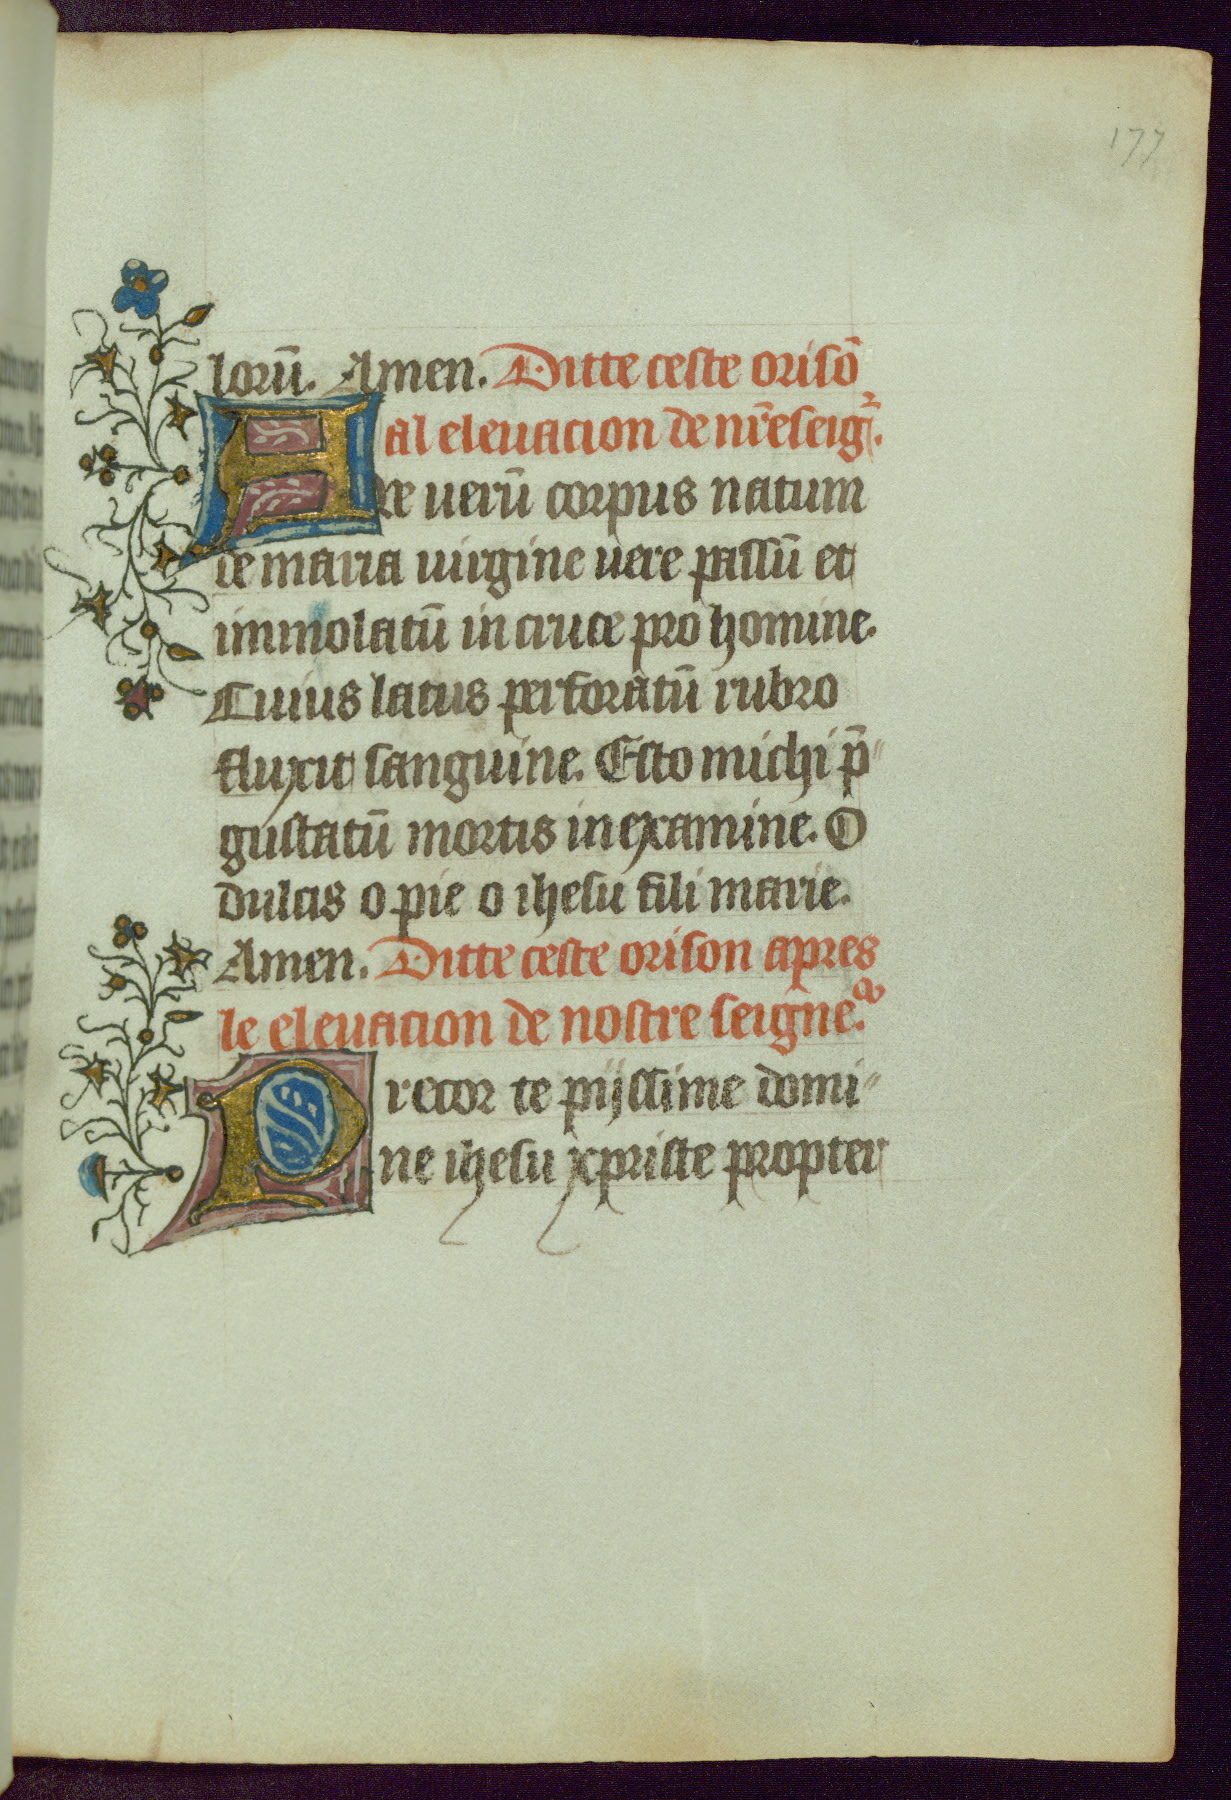 177
lorū. Amen. Ditte ceste orisō
al eleuacion de nr̄e seigr̄.
Aue uerū corpus natum
de maria uirgine uere passū et
immolatū in cruce pro homine.
Cuius latus perforatū rubro
fluxit sanguine. Esto michi p̄
gustatū mortis in examine. O
dulcis o pie o ihesu fili marie.
Amen. Ditte ceste orison apres
le eleuacion de nostre seigne᷑.
Precor te pijssime domi
ne ihesu xpriste propter